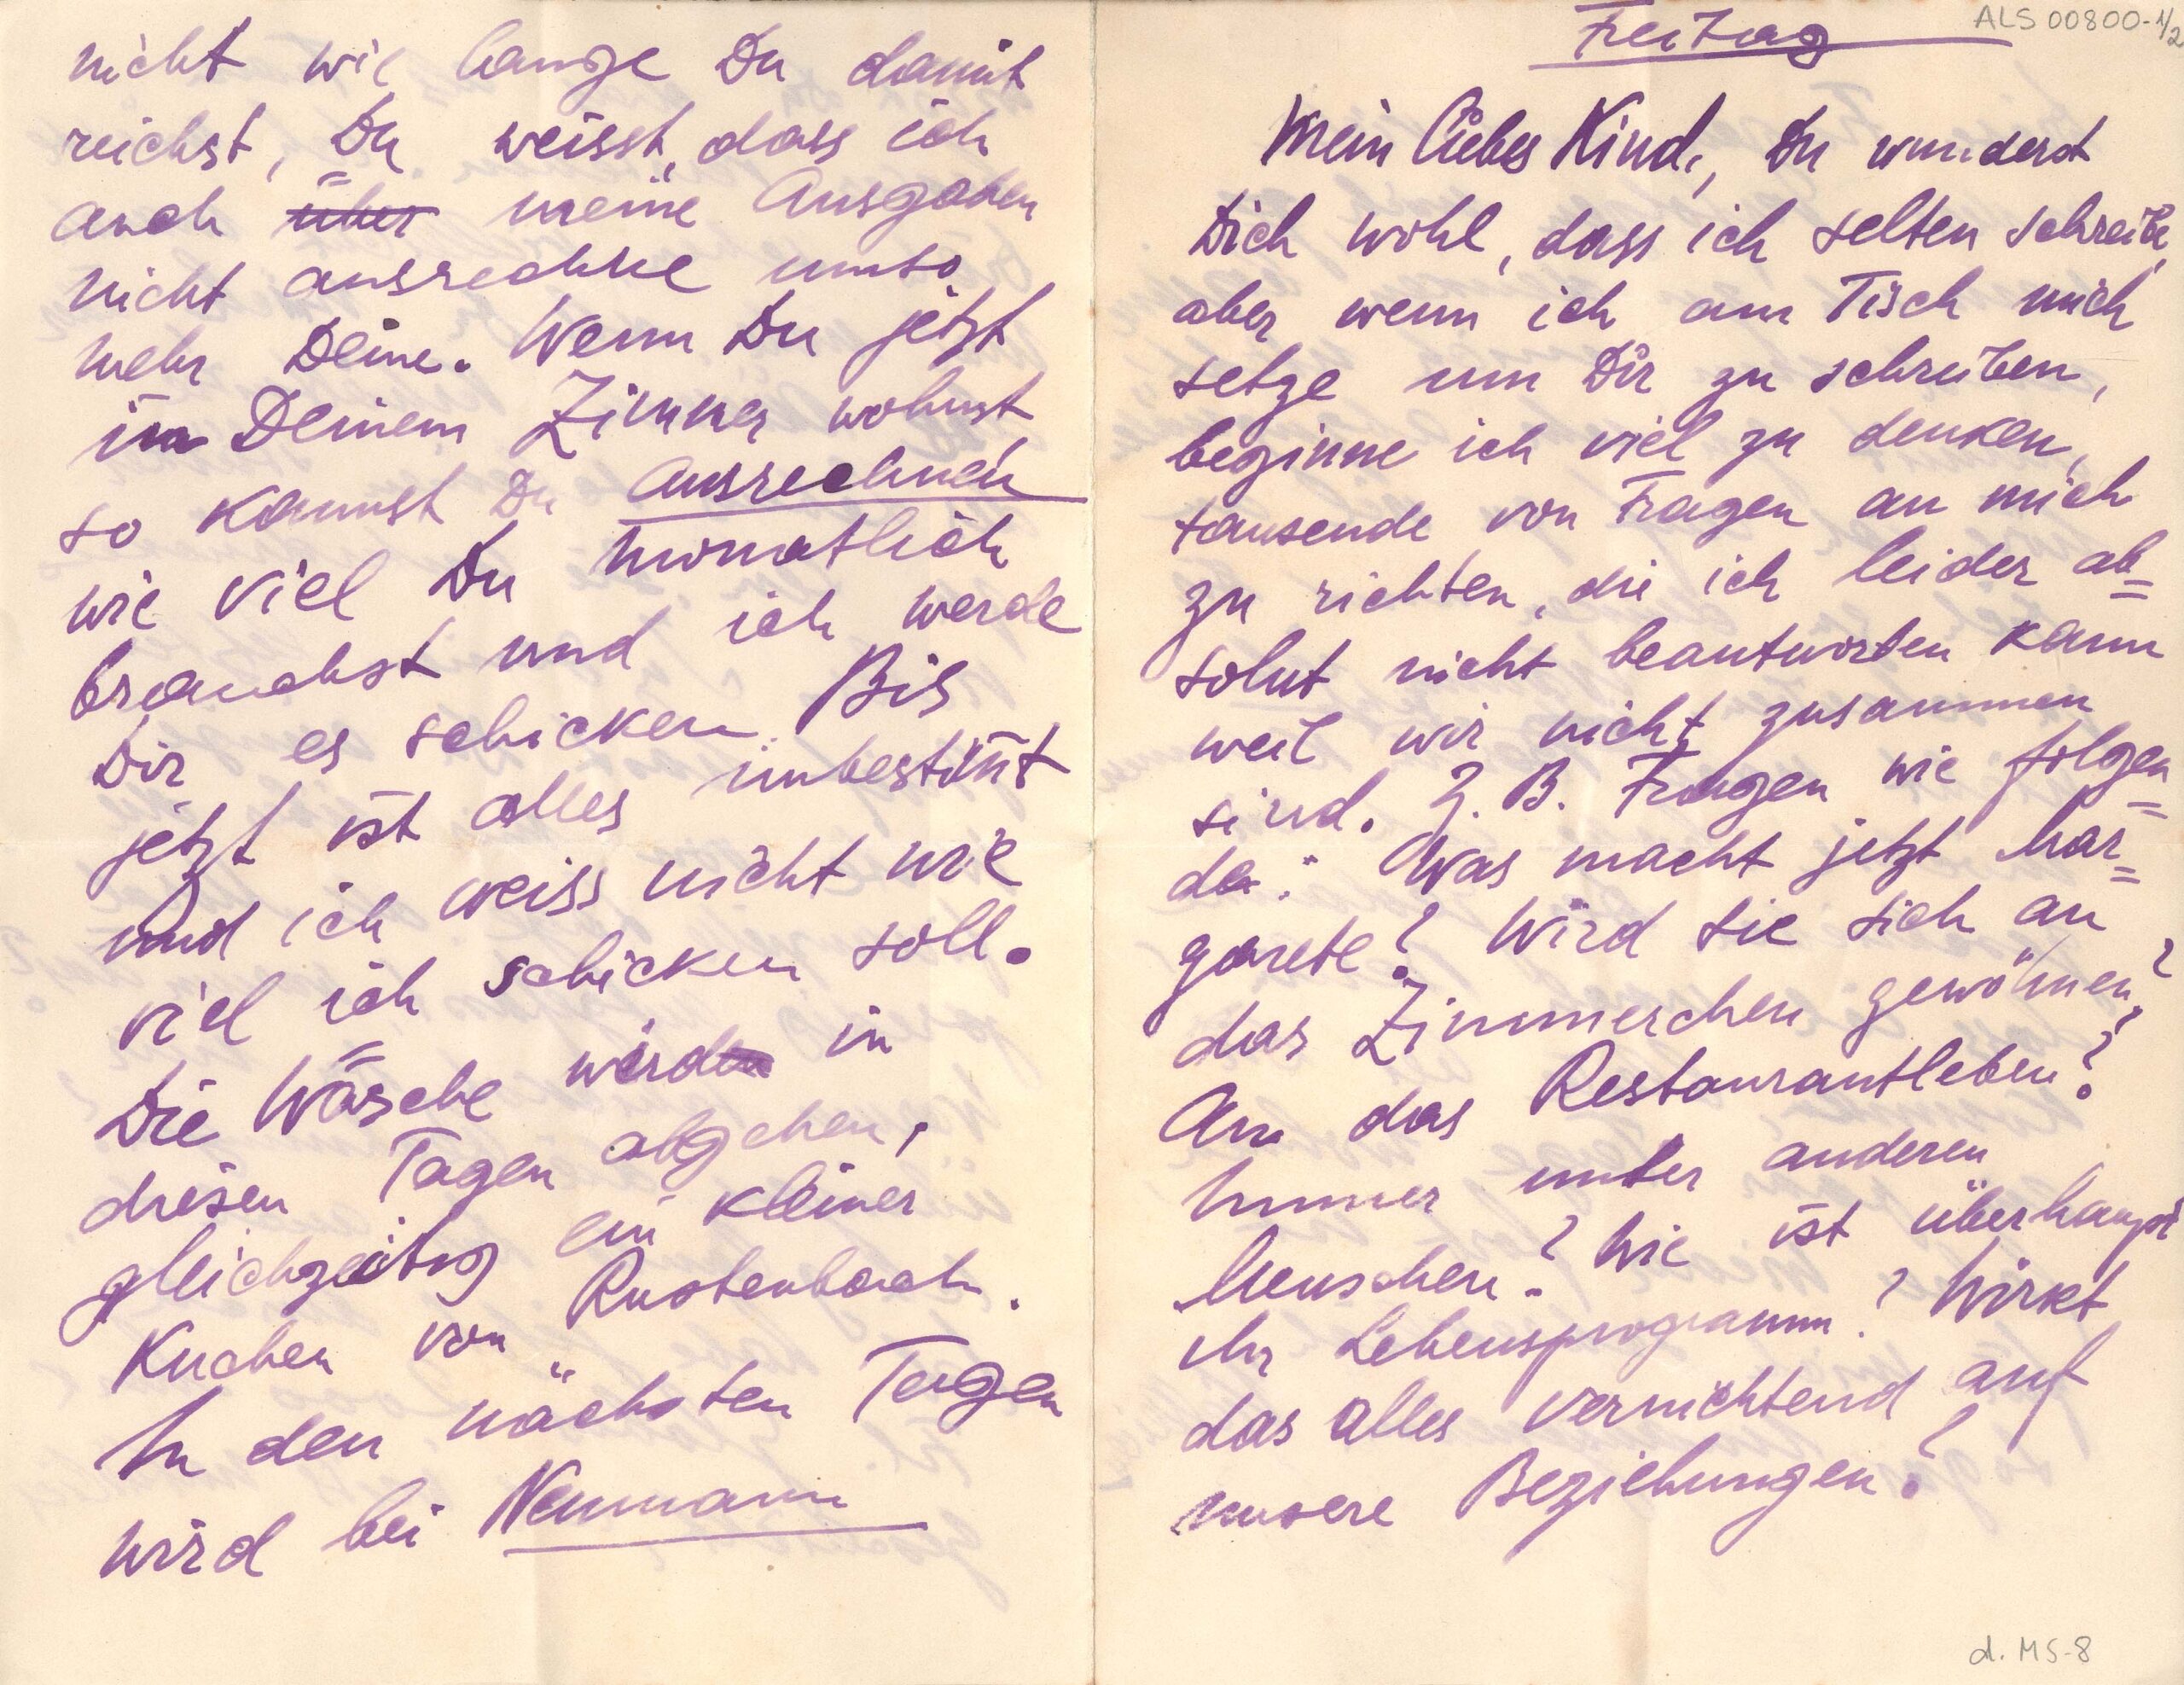 Freitag
ALS 00800-1/2
Mein liebes Kind, Du wunderst
Dich wohl, dass ich selten schreibe,
aber wenn ich am Tisch mich
setze um Dir zu schreiben,
beginne ich viel zu denken,
tausende von Fragen an mich
zu richten, die ich leider ab=
solut nicht beantworten kann
weil wir nicht zusammen
sind. Z. B. Fragen wie folgen=
de: Was macht jetzt Mar=
garete? Wird sie sich an
das Zimmerchen gewöhnen?
An das Restaurantleben?
Immer unter anderen
Menschen? Wie ist überhaupt
ihr Lebensprogramm? Wirkt
das alles vernichtend auf
unsere Beziehungen?
d. MS-8
nicht wie lange Du damit
reichst, Du weisst, dass ich
auch über meine Ausgaben
nicht ausrechne umso
mehr Deine. Wenn Du jetzt
in Deinem Zimmer wohnst
so kannst Du ausrechnen
wie viel Du monatlich
brauchst und ich werde
Dir es schicken. Bis
jetzt ist alles unbestimt
und ich weiss nicht wie
viel ich schicken soll.
Die Wäsche wird in
diesen Tagen abgehen,
gleichzeitig ein kleiner
Kuchen von Rustenbach.
In den nächsten Tagen
wird bei Neumann